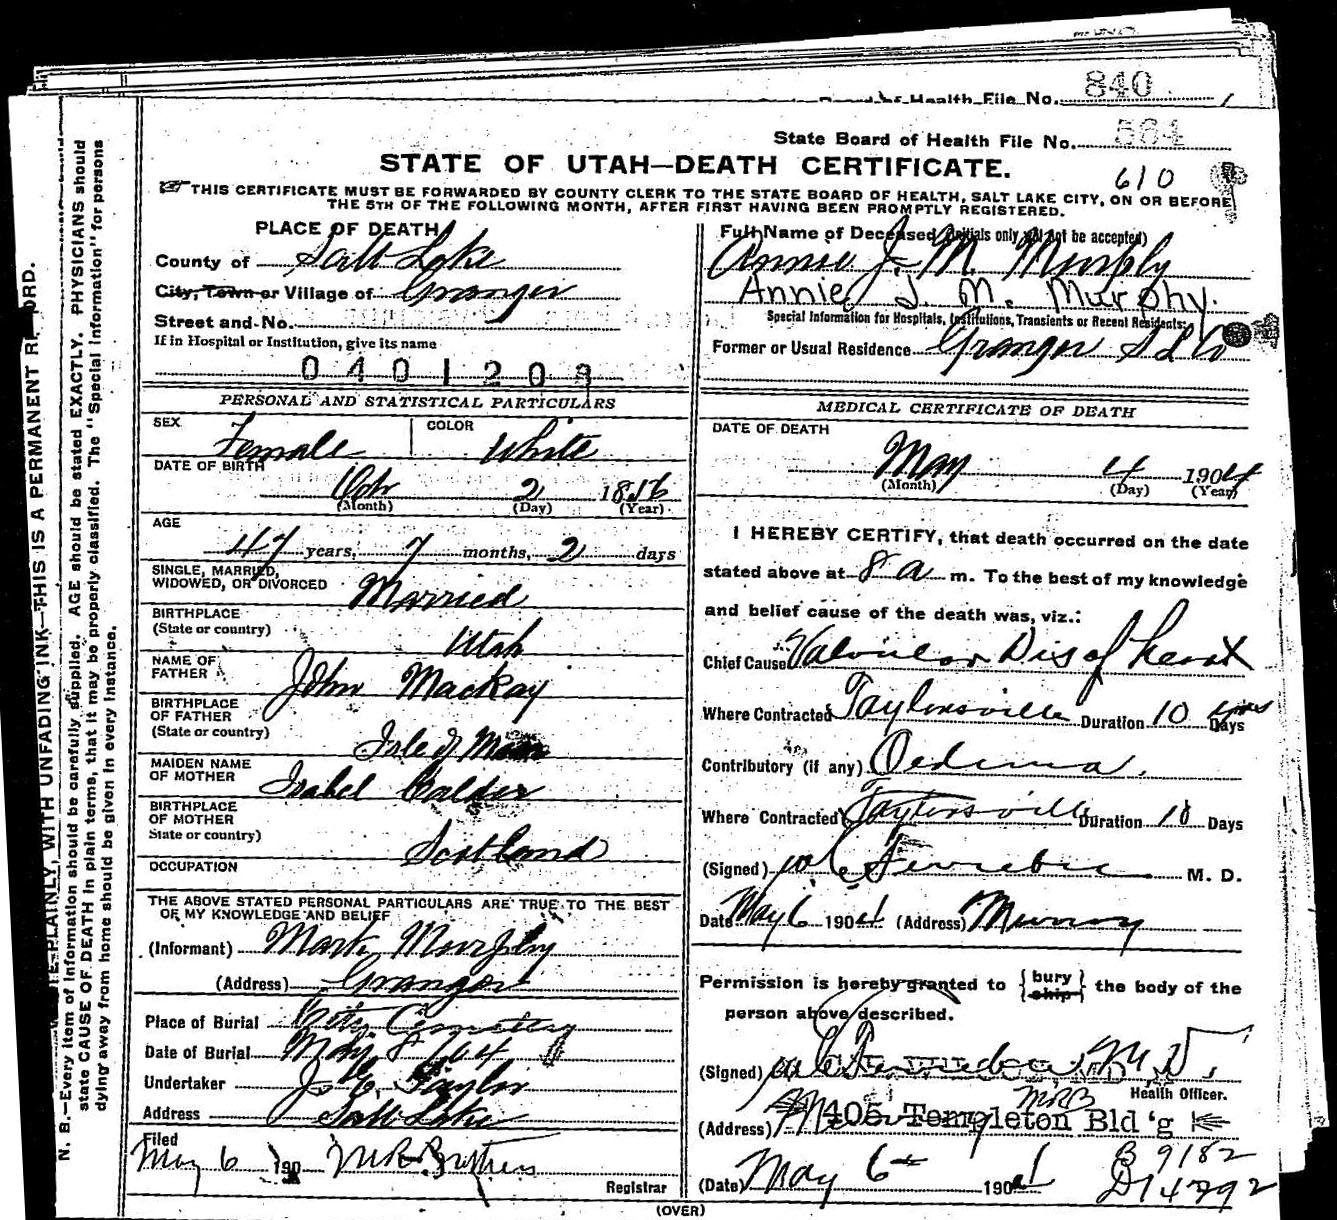 840
Board of Health File No.
State Board of Health File No. 564
STATE OF UTAH—DEATH CERTIFICATE.
610
THIS CERTIFICATE MUST BE FORWARDED BY COUNTY CLERK TO THE STATE BOARD OF HEALTH, SALT LAKE CITY, ON OR BEFORE
THE 5TH OF THE FOLLOWING MONTH, AFTER FIRST HAVING BEEN PROMPTLY REGISTERED.
N. B.—Every item of information should be carefully supplied. AGE should be stated EXACTLY. PHYSICIANS should
state CAUSE OF DEATH in plain terms, that it may be properly classified. The "Special Information" for persons
dying away from home should be given in every instance.
PLAINLY, WITH UNFADING INK—THIS IS A PERMANENT
PLACE OF DEATH
County of Salt Lake
City, Town or Village of Granger
Street and No.
If in Hospital or Institution, give its name
0401209
PERSONAL AND STATISTICAL PARTICULARS
SEX Female
COLOR White
DATE OF BIRTH
Oct 2 1856
(Month) (Day) (Year)
AGE
47 years, 7 months, 2 days
SINGLE, MARRIED,
WIDOWED, OR DIVORCED Married
BIRTHPLACE
(State or country) Utah
NAME OF
FATHER John Mackay
BIRTHPLACE
OF FATHER
(State or country) Isle of Man
MAIDEN NAME
OF MOTHER Isabel Calder
BIRTHPLACE
OF MOTHER
State or country) Scotland
OCCUPATION
THE ABOVE STATED PERSONAL PARTICULARS ARE TRUE TO THE BEST
OF MY KNOWLEDGE AND BELIEF
(Informant) Mark Murphy
(Address) Granger
Place of Burial City Cemetery
Date of Burial May 8 1904
Undertaker Taylor
Address Salt Lake
Filed
May 6 190
Registrar
Full Name of Deceased (Initials only will not be accepted)
Annie J. M. Murphy
Annie J. M. Murphy.
Special Information for Hospitals, Institutions, Transients or Recent Residents:
Former or Usual Residence Granger S L Co
MEDICAL CERTIFICATE OF DEATH
DATE OF DEATH
May 4 1904
(Month) (Day) (Year)
I HEREBY CERTIFY, that death occurred on the date
stated above at 8 a m. To the best of my knowledge
and belief cause of the death was, viz.:
Chief Cause Valvular Dis of heart
Where Contracted Taylorsville Duration 10 yrs Days
Contributory (if any) Oedima.
Where Contracted Taylorsville Duration 10 Days
(Signed) M. D.
Date May 6 1904 (Address) Murray
Permission is hereby granted to {bury ship} the body of the
person above described.
(Signed) M. D.
Health Officer.
(Address) 405 Templeton Bld'g
(Date) May 6th 1904
B 9182
D14792
(OVER)